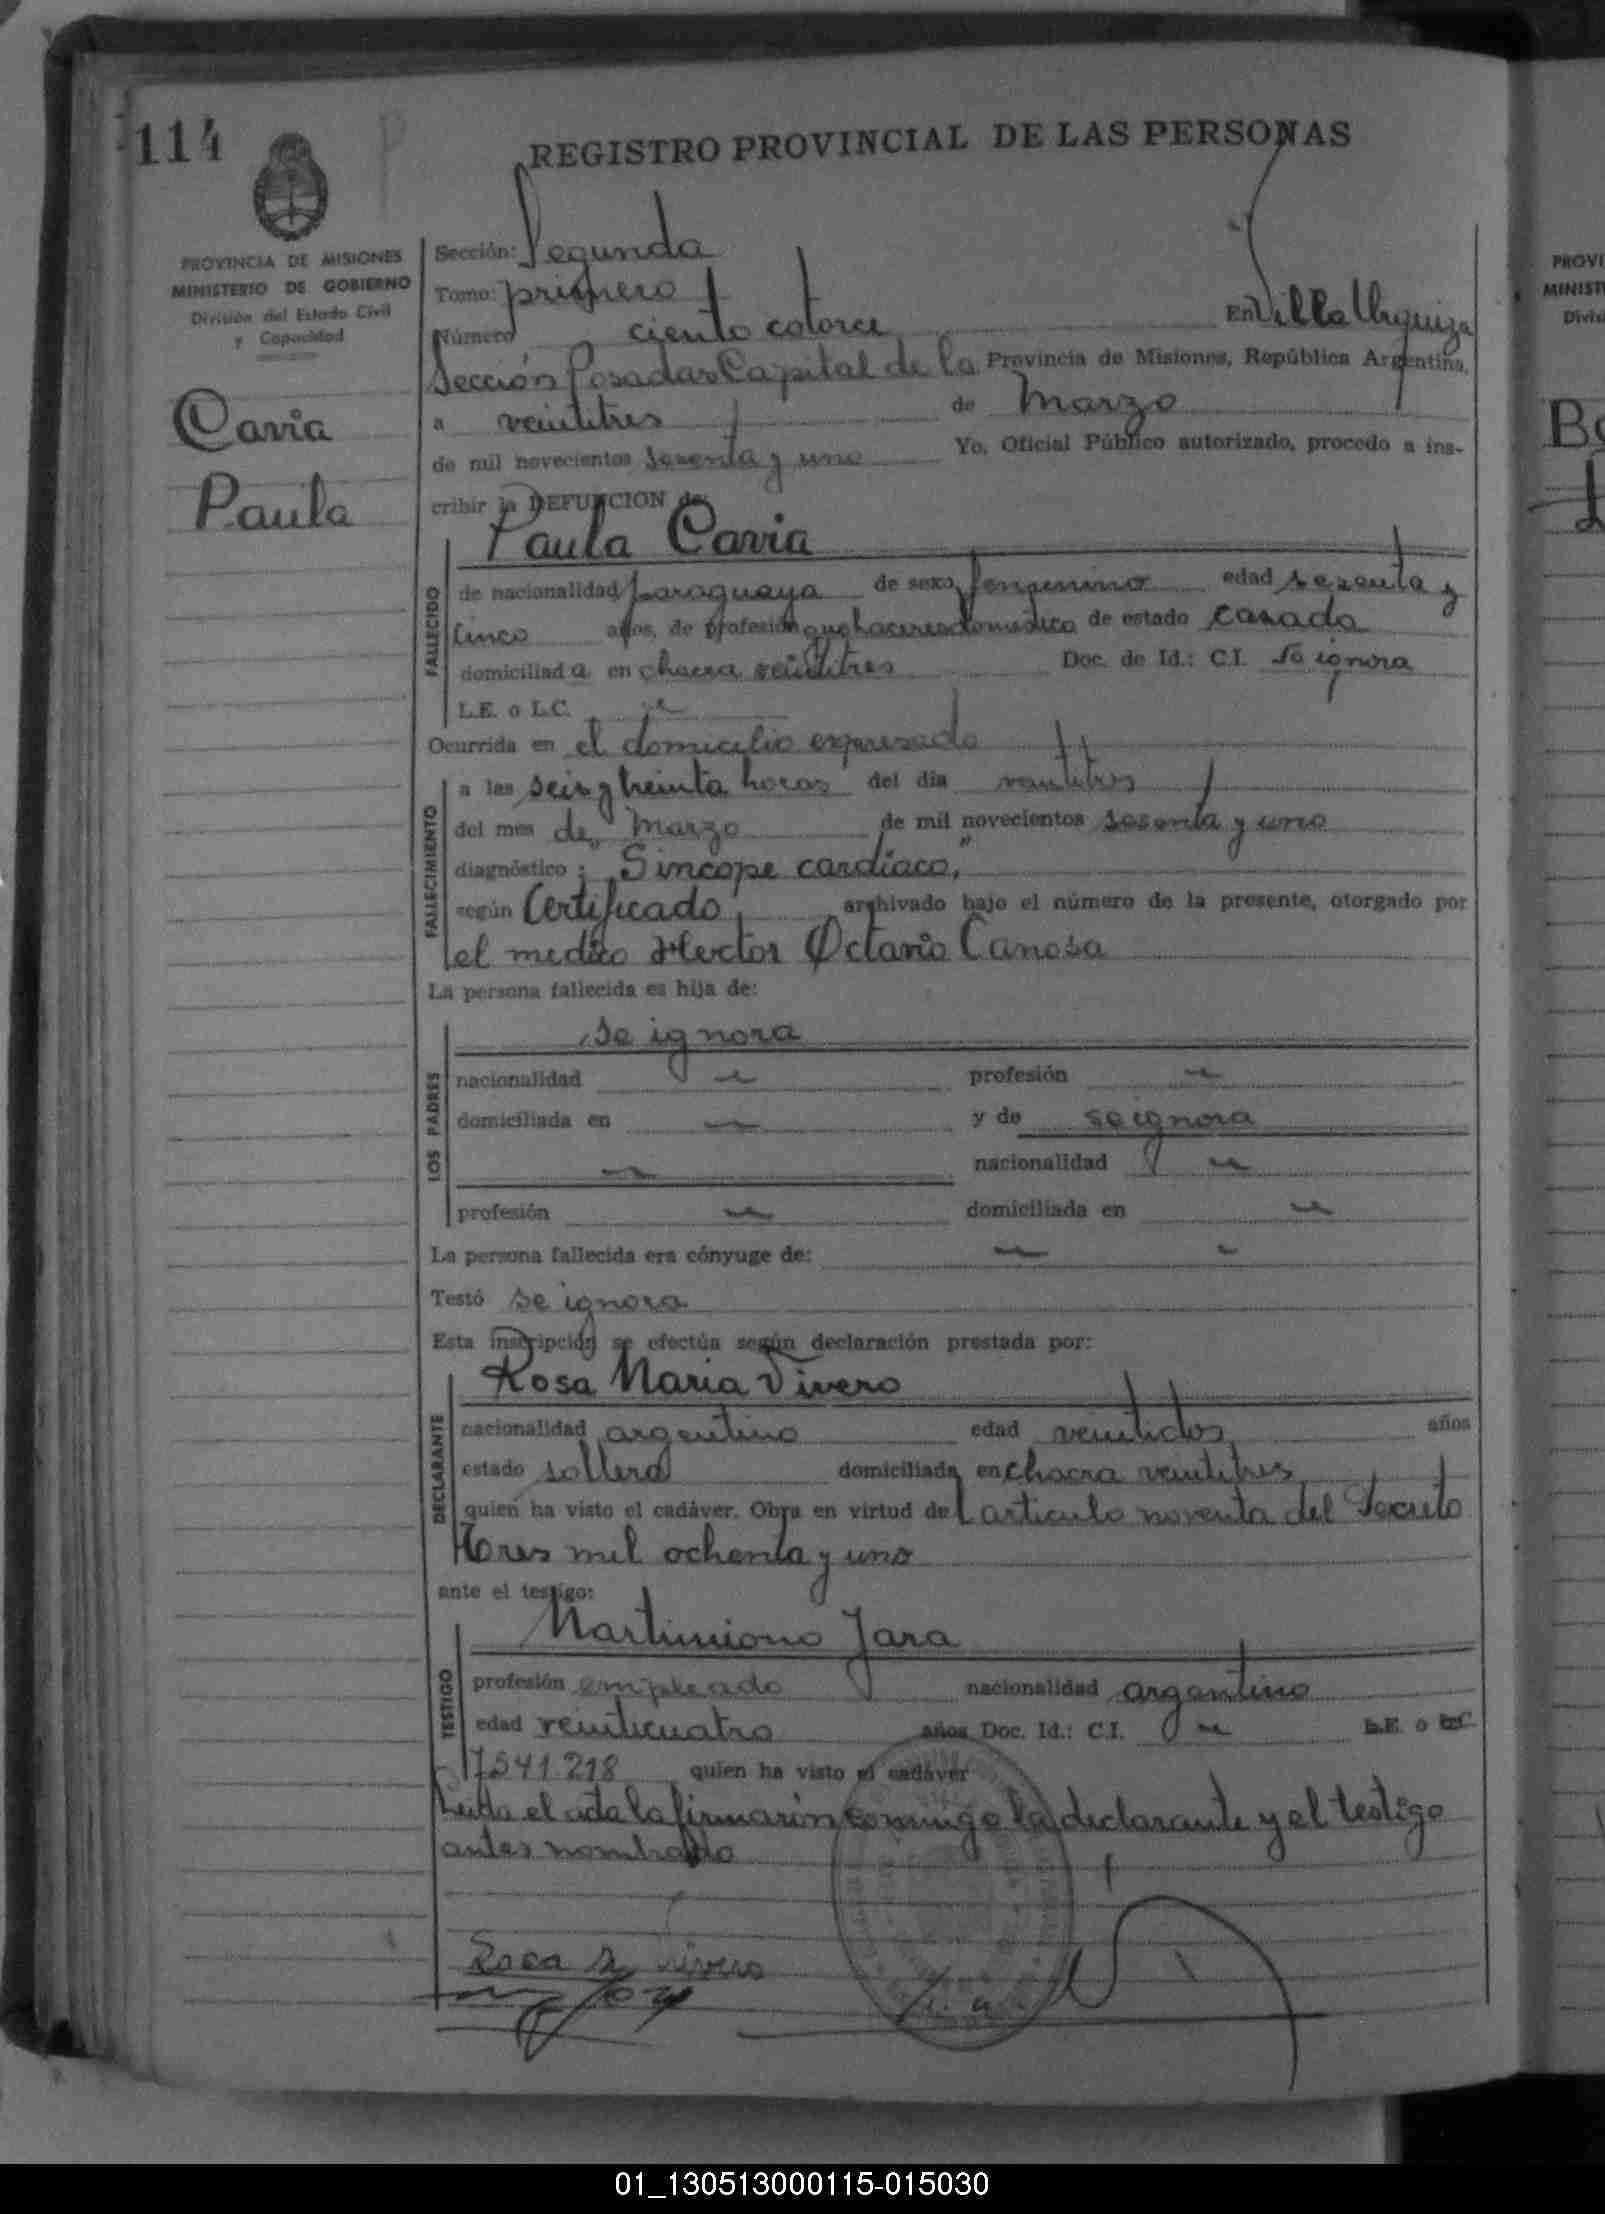 114
REGISTRO PROVINCIAL DE LAS PERSONAS
PROVINCIA DE MISIONES
MINISTERIO DE GOBIERNO
División del Estado Civil
y Capacidad
Cavia
Paula
Sección: Segunda
Tomo: primero
Número ciento catorce En Villa Urquiza
Sección Posadas Capital de la Provincia de Misiones, República Argentina,
a veintitres de Marzo
de mil novecientos sesenta y uno Yo, Oficial Público autorizado, procedo a ins-
cribir la DEFUNCION de:
Paula Cavia
FALLECIDO
de nacionalidad paraguaya de sexo femenino edad sesenta y
cinco años, de profesión quehaceres domestico de estado casada
domiciliad a en chacra veintitres Doc. de Id.: C.I. Se ignora
L.E. o L.C.
Ocurrida en el domicilio expresado
FALLECIMIENTO
a las seis y treinta horas del día veintitres
del mes de Marzo de mil novecientos sesenta y uno
diagnóstico: "Sincope cardíaco,"
según Certificado archivado bajo el número de la presente, otorgado por
el medico Hector Octavio Canosa
La persona fallecida es hija de:
LOS PADRES
se ignora
nacionalidad profesión
domiciliada en y de se ignora
nacionalidad
profesión domiciliada en
La persona fallecida era cónyuge de:
Testó se ignora
Esta inscripción se efectúa según declaración prestada por:
DECLARANTE
Rosa Maria Vivero
nacionalidad argentina edad veintidos años
estado soltera domiciliada en chacra veintitres
quien ha visto el cadáver. Obra en virtud del articulo noventa del Decreto
tres mil ochenta y uno
ante el testigo:
TESTIGO
Martiniano Jara
profesión empleado nacionalidad argentino
edad veinticuatro años Doc. Id.: C.I. L.E. o L.C.
7541.218 quien ha visto el cadáver
Leida el acta la firmaron conmigo la declarante y el testigo
antes nombrado
Rosa M Vivero
PROVI
MINIST
Divis
01_130513000115-015030